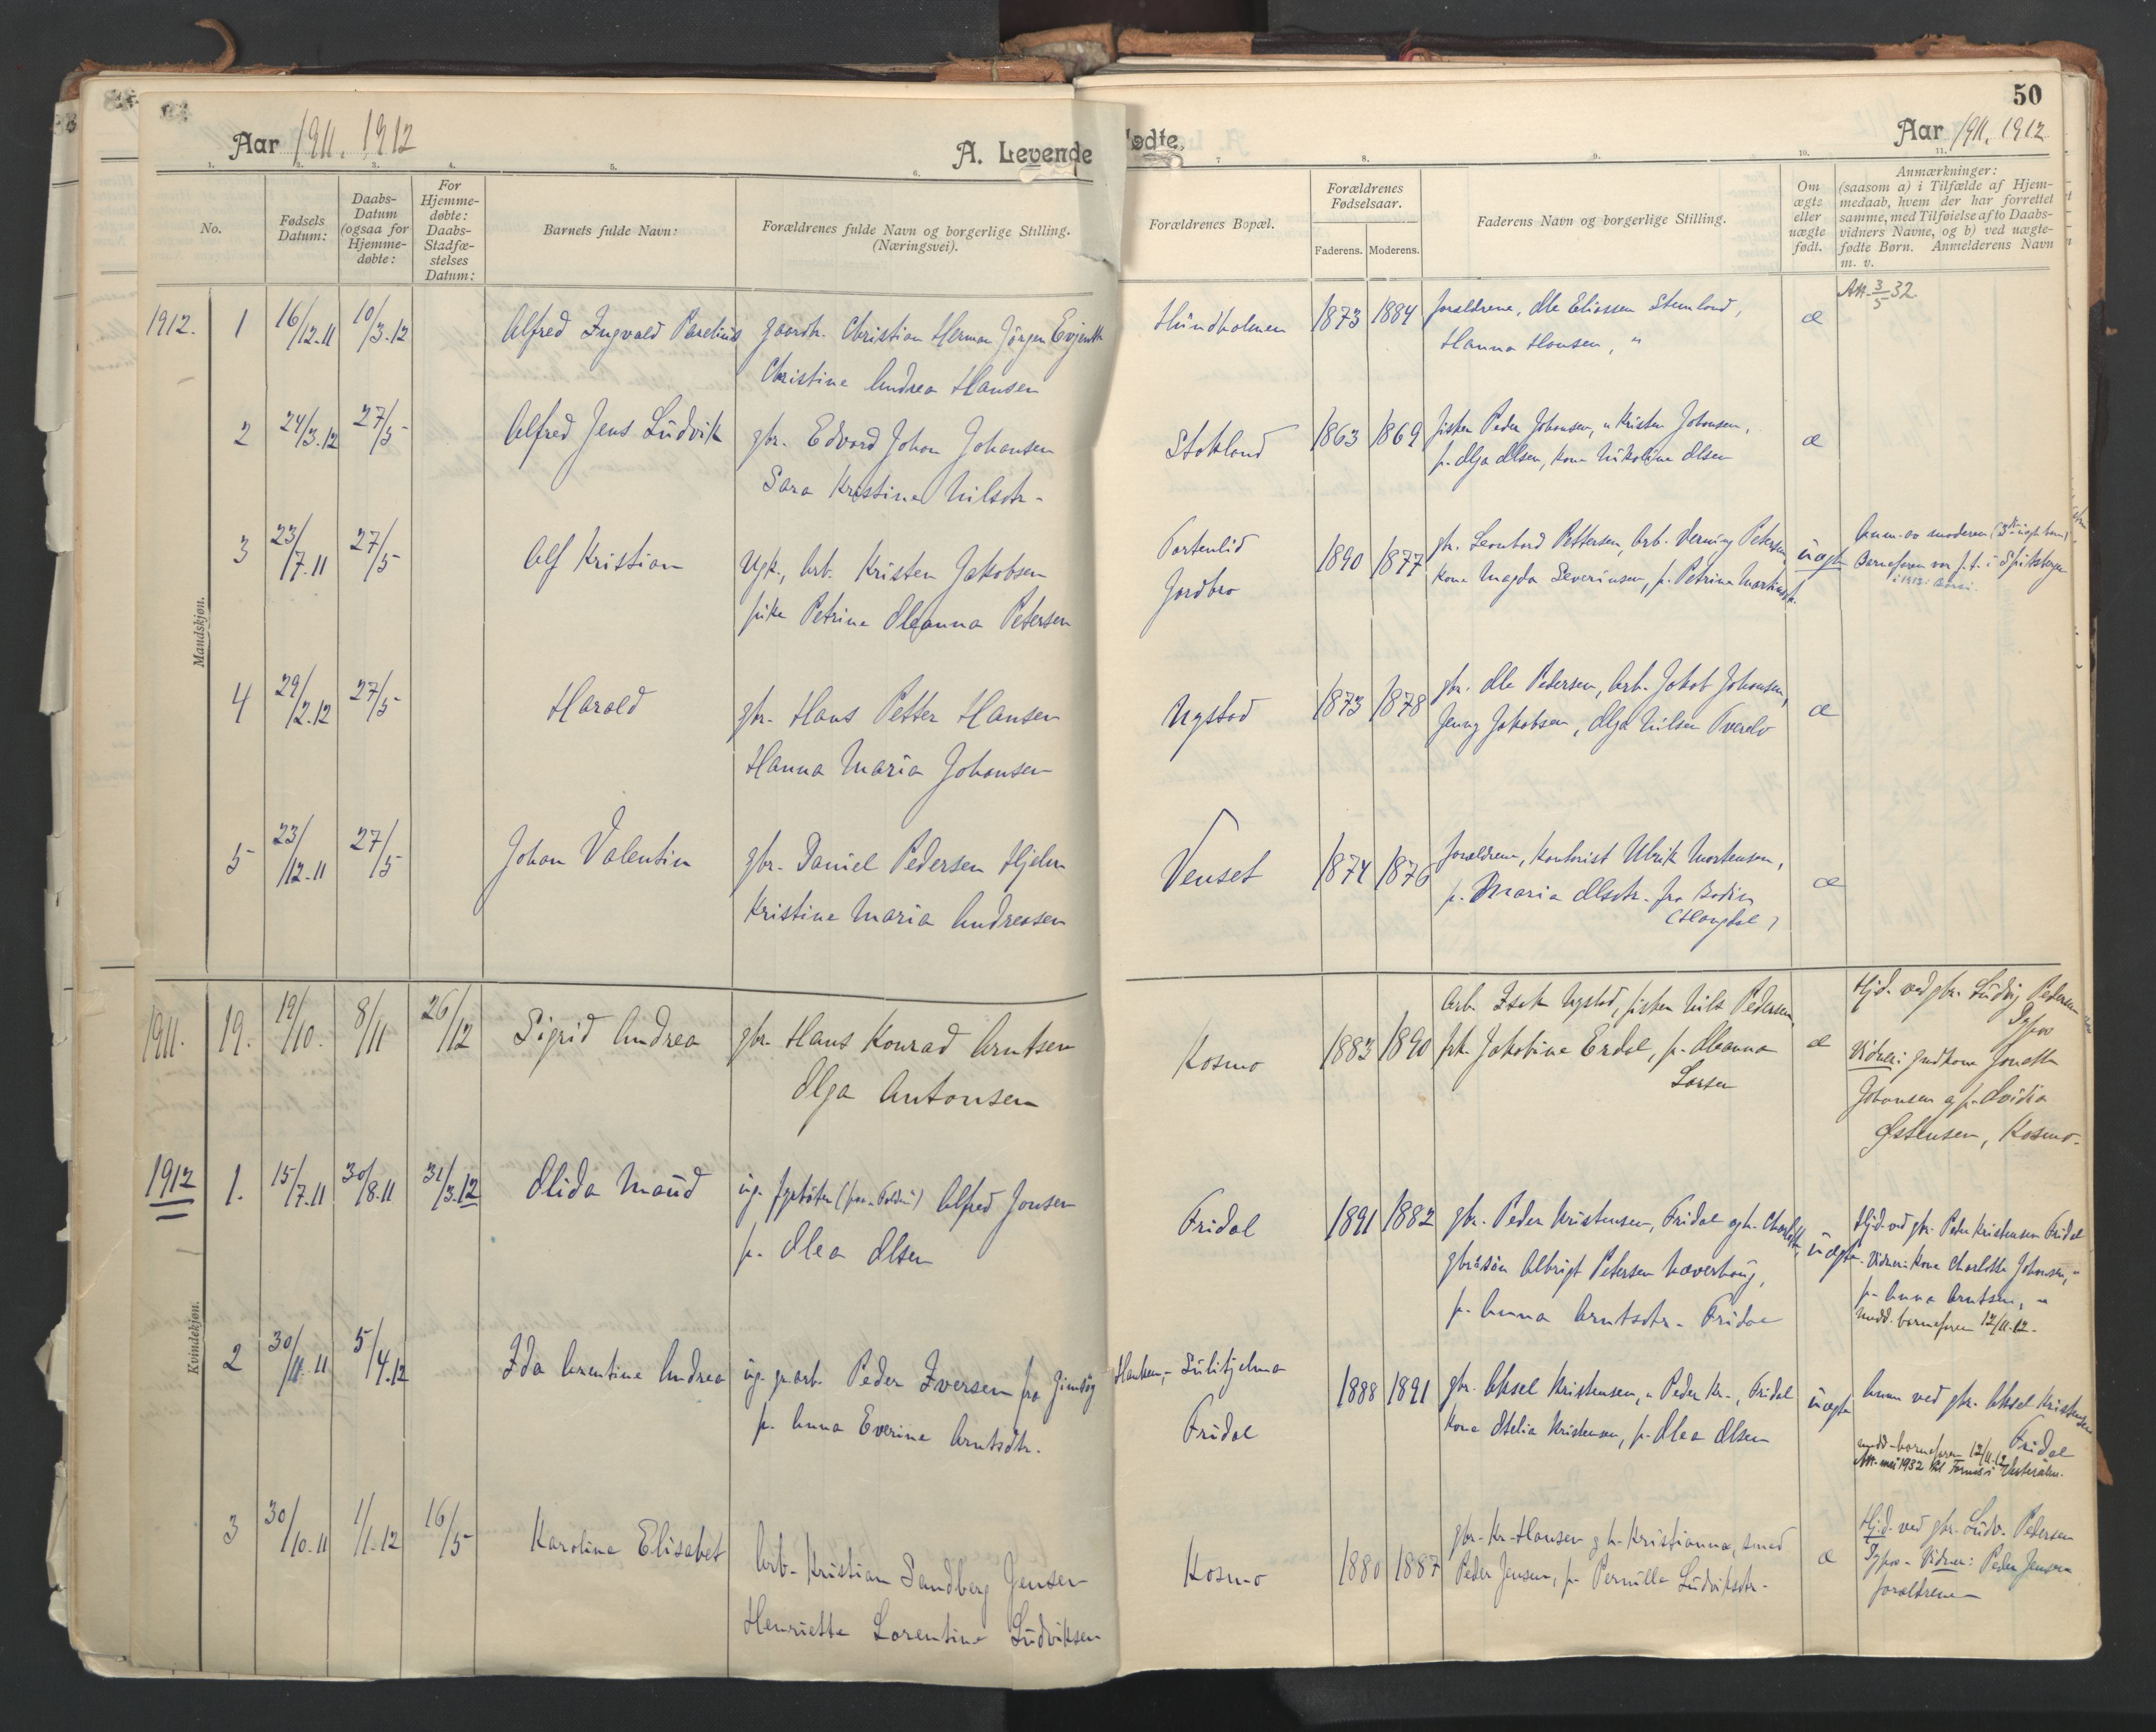 50
Aar 1911. 1912
A. Levende
fødte.
Aar 1911. 1912
1.
2.
3.
4.
5.
6.
7
8.
9.
10.
11.
No.
Fødsels
Datum:
Daabs-
Datum
(ogsaa for
Hjemme-
døbte:
For
Hjemme-
døbte:
Daabs-
Stadfæ-
stelses
Datum:
Barnets fulde Navn:
Forældrenes fulde Navn og borgerlige Stilling.
(Næringsvei).
Forældrenes Bopæl.
Forældrenes
Fødselsaar.
Faderens. Moderens.
Faderens Navn og borgerlige Stilling.
Om
ægte
eller
uægte
født.
Anmærkninger:
(saasom a) i Tilfælde af Hjem-
medaab, hvem der har forrettet
samme, med Tilføielse af to Daabs-
vidners Navne, og b) ved uægte-
fødte Børn. Anmelderens Navn
m. v.
Mandskjøn.
1912. 1 16/12.11 10/3.12 Alfred Ingvald Parelius gaardbr. Christian Herman Jörgen Evjenth
Christine Andrea Hansen
Hundholmen 1873 1884 forældrene, Ole Eliassen Stemland,
Hanna Hansen, "
æ
Att. 3/5 32
2 24/3.12 27/5 Alfred Jens Ludvik gbr. Edvard Johan Johansen
Sara Kristine Nilsdtr.
Stokland 1863 1869 fisker Peder Johansen, " Kristen Johansen,
p. Olga Olsen, kone Nikoline Olsen
æ
3 23/7.11 27/5 Alf Kristian Ugk., Arb. Kristen Jakobsen
pike Petrine Oleanna Petersen
Tortenlid
Jordbro
1890 1877 gbr. Leonhard Pettersen, Arb. Petersen,
kone Magda Severinsen, p. Petrine
uægte
Anm. av moderen (3dje uægte barn)
Barnefaren var p.t. i Spitsbergen
4 29/2.12 27/5 Harald gbr. Hans Petter Hansen
Hanna Maria Johansen
Nystad 1873 1878 gbr. Ole Pedersen, Arb. Jakob Johansen,
Jenny Jakobsen, Olga Nilsen Tverelv
æ
5 23/12.11 27/5 Johan Valentin gbr. Daniel Pedersen Hjelm
Kristine Maria Andreasen
Venset 1874 1876 forældrene, Kontorist Ulrik Mortensen,
p. Maria Olsdtr. fra Bodin
(Haugdal)
æ
Kvindekjøn.
1911. 19. 19/10. 8/11 26/12 Sigrid Andrea gbr. Hans Konrad Arntsen
Olga Antonsen
Kosmo 1883 1890 Arb. Isak Nystad, fisker Nils Pedersen,
frk. Jakobine Erdal, p. Oleanna
Larsen
æ
Hjd. ved gbr. Ludvig Pedersen
Vidner: Jonetta
Johansen og p. Ovidia
Østensen, Kosmo.
1912 1. 15/7.11 30/8.11 31/3.12 Olida Maud ug. Alfred Jonsen
p. Olea Olsen
Fridal 1891 1882 gbr. Peder Kristensen, Fridal og h. Charlotte,
gbrsøn Albrigt Petersen Næverhaug,
p. Anna Arntsdtr. Fridal
uægte
Hjd. ved gbr. Peder Kristensen Fridal
Vidner: Kone Charlotte Johansen, "
p. Anna Arntsen, "
medd. barnefaren 12/11.12.
2 30/11.11 5/4.12 Ida Arentine Andrea ug. gr.arb. Peder Iversen fra Gimsøy
p. Anna Everine Arntsdtr.
Hanken, Sulitjelma
Fridal
1888 1891 gbr. Aksel Kristensen, " Peder Kr., Fridal
kone Otelia Kristensen, p. Olea Olsen
uægte
Anm. ved gbr. Aksel Kristensen
Fridal
medd. barnefaren 12/11.12
Att. mai 1932
3 30/10.11 1/1.12 16/5 Karoline Elisabet Arb. Kristian Sandberg Jensen
Henriette Lorentine Ludviksen
Kosmo 1880 1887 gbr. Kr. Hansen og h. Kristianna, smed
Peder Jensen, p. Pernille Ludviksdtr.
æ
Hjd. ved gbr. Ludv. Pedersen
Vidner: Peder Jensen
forældrene